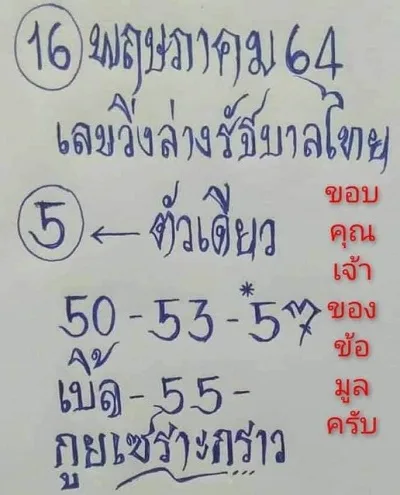 16 พฤษภาคม 64
เลขวิ่งล่างรัฐบาลไทย
5 ← ตัวเดียว
50 - 53 - *57
เบิ้ล - 55 -
กูยเซราะกราว
ขอบ
คุณ
เจ้า
ของ
ข้อ
มูล
ครับ